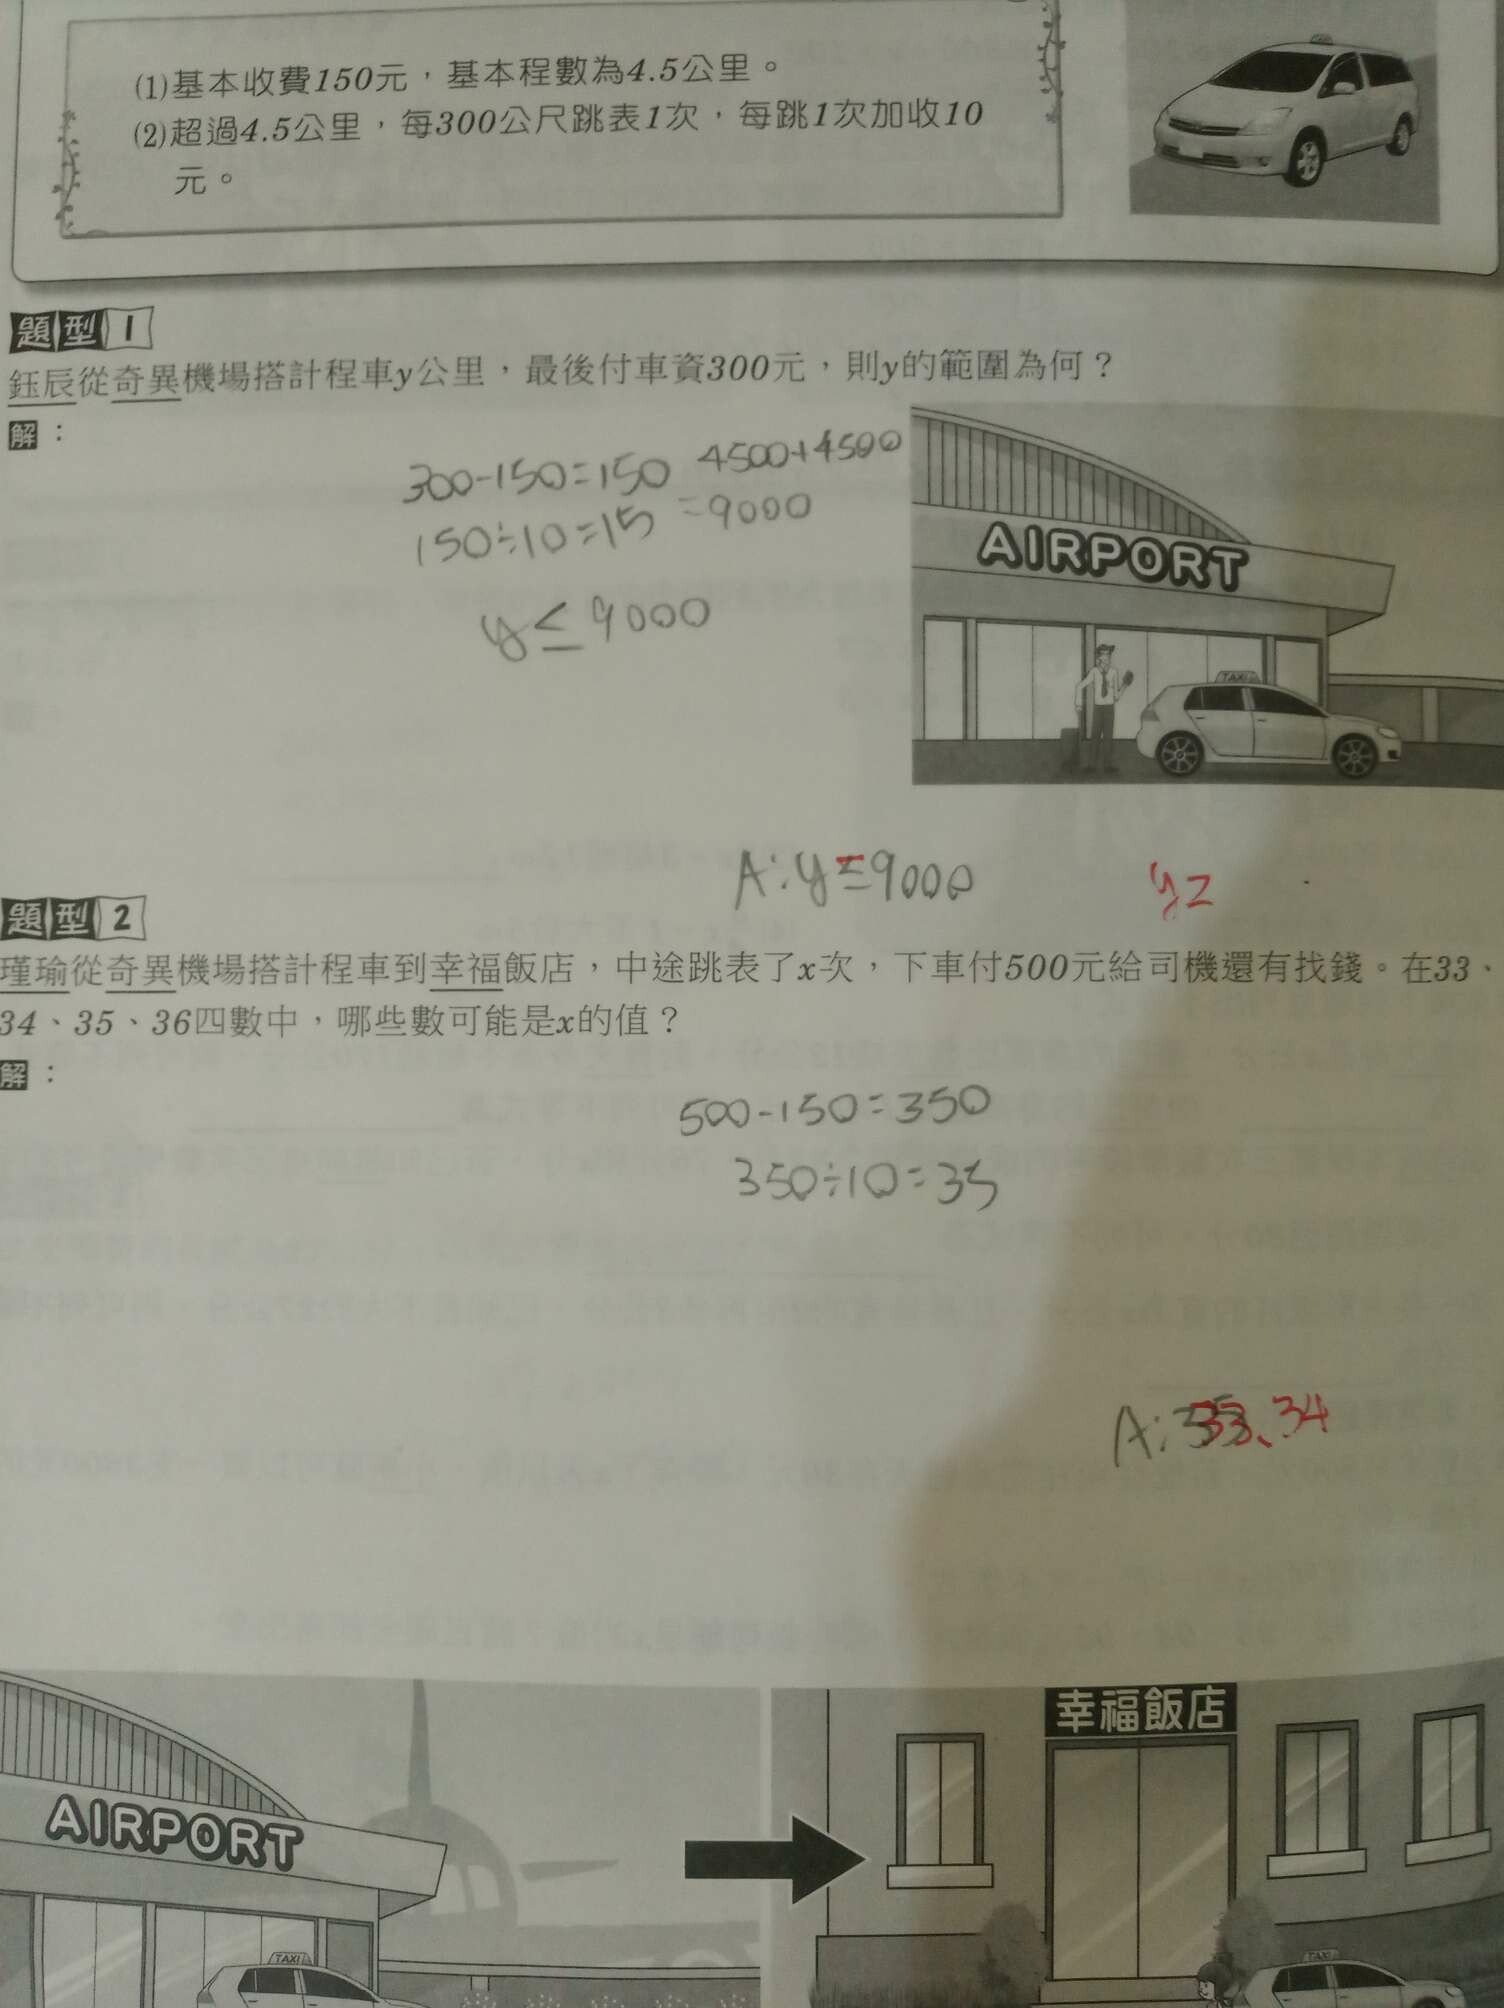 (1)基本收費150元，基本程數為4.5公里。
(2)超過4.5公里，每300公尺跳表1次，每跳1次加收10
元。
題型1
鈺辰從奇異機場搭計程車y公里，最後付車資300元，則y的範圍為何？
解：
300-150=150 4500+4500
150÷10=15 =9000
y≤9000
AIRPORT
TAXI
A:y=9000
y=
題型2
瑾瑜從奇異機場搭計程車到幸福飯店，中途跳表了x次，下車付500元給司機還有找錢。在33、
34、35、36四數中，哪些數可能是x的值？
解：
500-150=350
350÷10=35
A:33、34
幸福飯店
AIRPORT
TAXI
TAXI